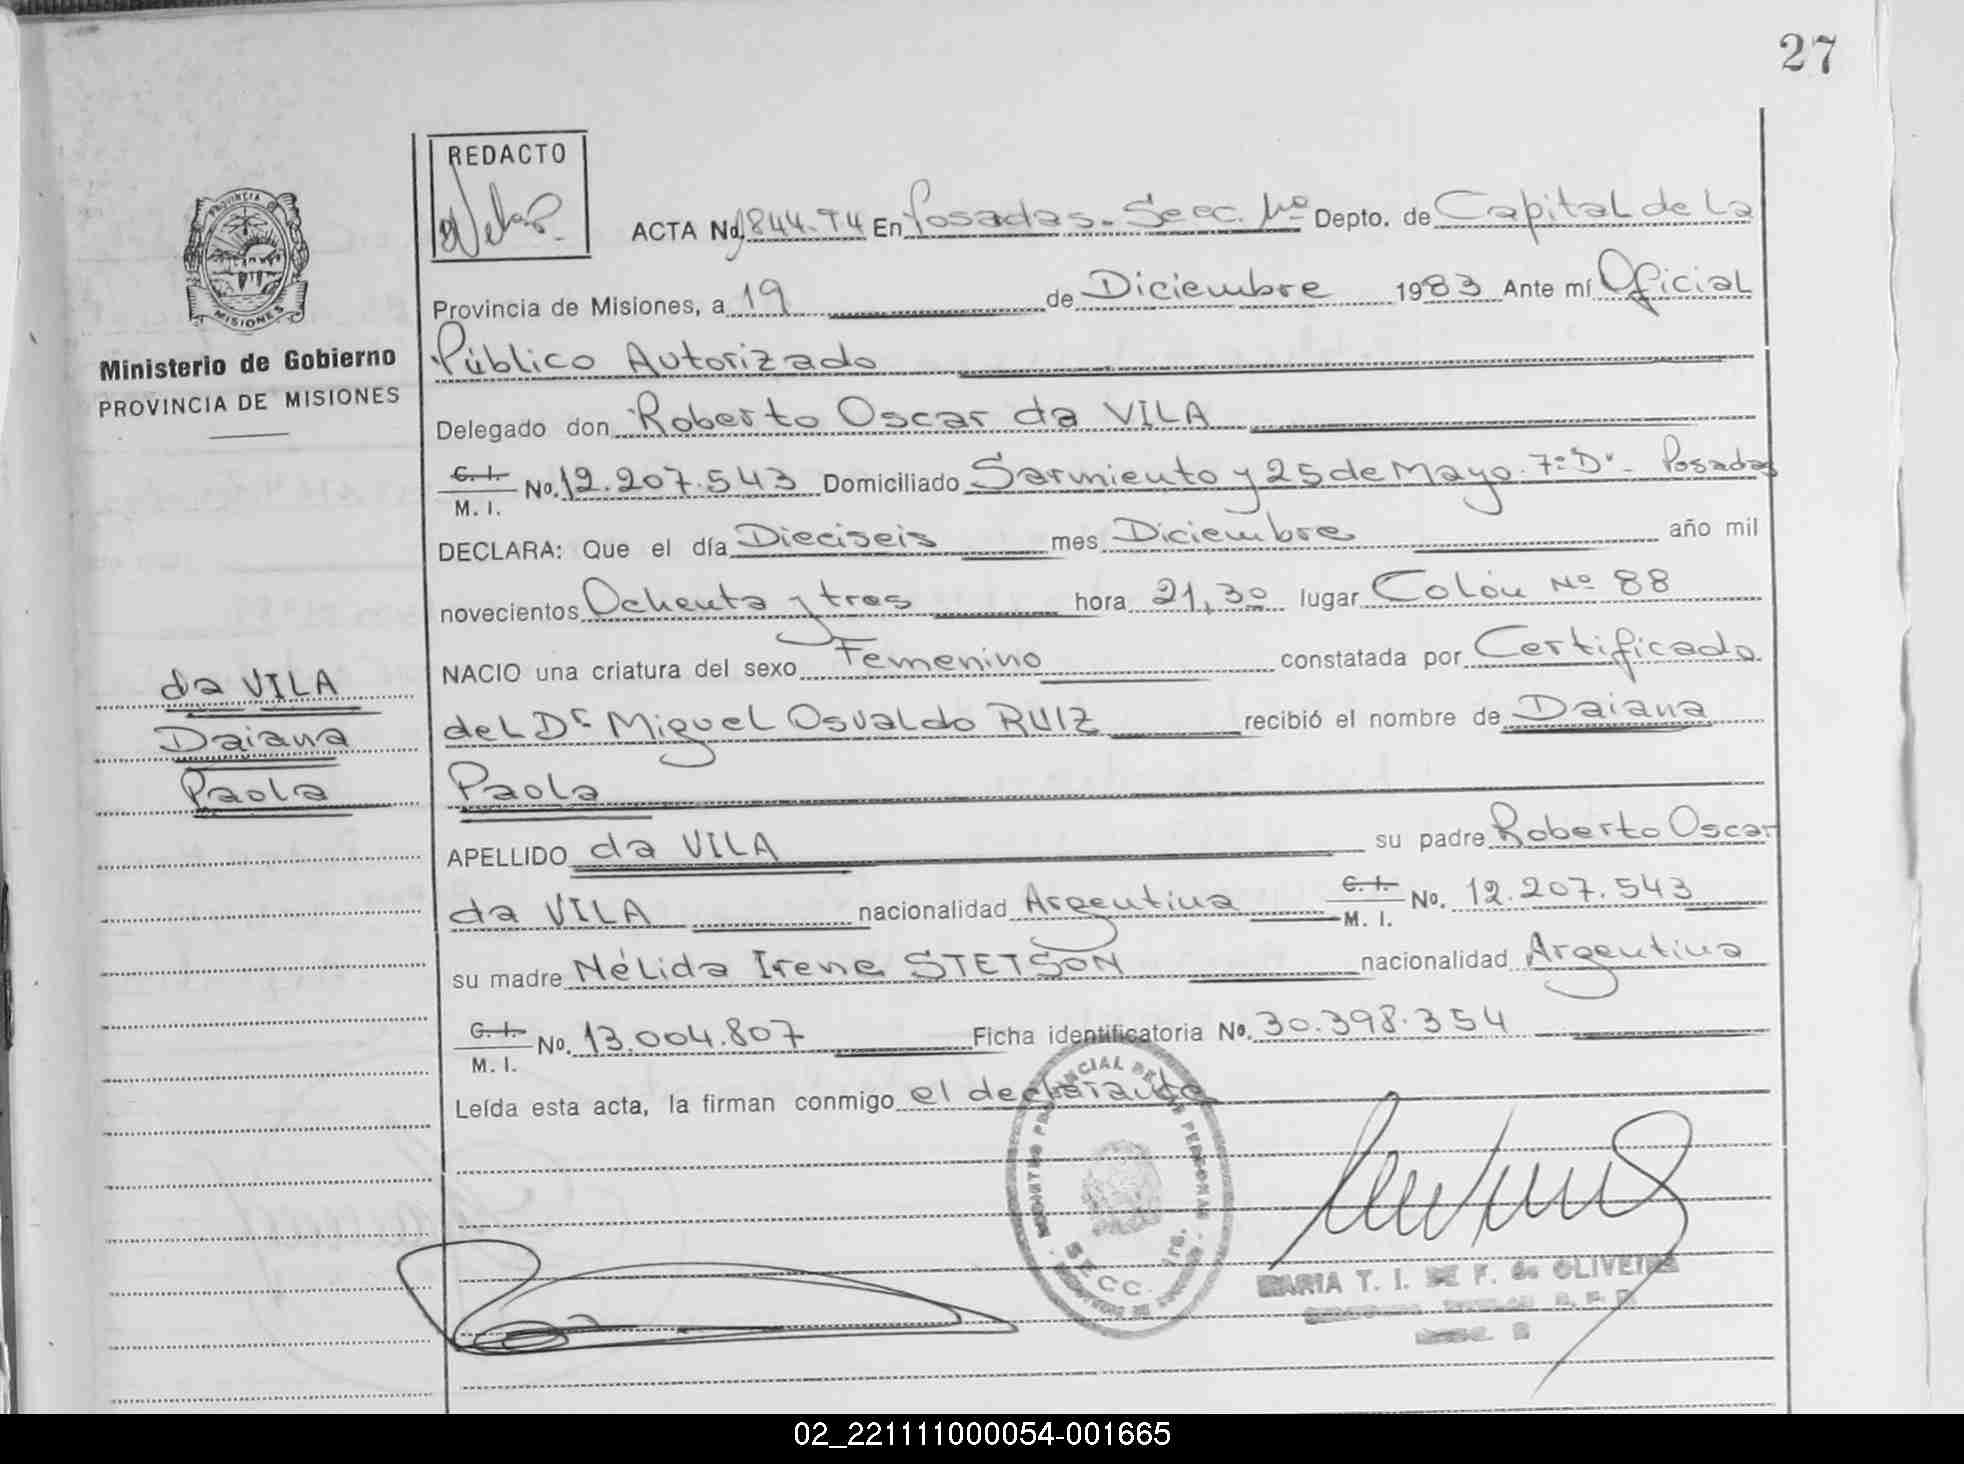 27
REDACTO
PROVINCIA DE
MISIONES
Ministerio de Gobierno
PROVINCIA DE MISIONES
ACTA No. 1844-T4 En Posadas-Secc. 1ro Depto. de Capital de La
Provincia de Misiones, a 19 de Diciembre 1983 Ante mí Oficial
Público Autorizado
Delegado don Roberto Oscar da VILA
C. I. M. I. No. 12.207.543 Domiciliado Sarmiento y 25 de Mayo. 7º"D"- Posadas
DECLARA: Que el día Dieciseis mes Diciembre año mil
novecientos Ochenta y tres hora 21,30 lugar Colón Nº 88
NACIO una criatura del sexo Femenino constatada por Certificado
del Dr Miguel Osvaldo RUIZ recibió el nombre de Daiana
Paola
da VILA
Daiana
Paola
APELLIDO da VILA su padre Roberto Oscar
da VILA nacionalidad Argentina C. I. M. I. No. 12.207.543
su madre Nélida Irene STETSON nacionalidad Argentina
C. I. M. I. No. 13.004.807 Ficha identificatoria No. 30.398.354
Leída esta acta, la firman conmigo el declarante
REGISTRO PROVINCIAL DE LAS PERSONAS
SECC. 1ra.
MARIA T. I. DE F. de OLIVEIRA
02_221111000054-001665